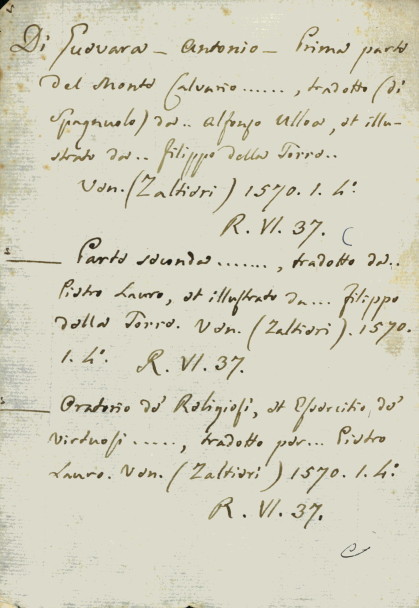 Di Guevara - Antonio - Prima parte
del Monte Calvario ......, tradotto (di
Spagnuolo) da.. Alfonso Ulloa, et illu-
strato da.. Filippo della Torre..
Ven. (Zaltieri) 1570. 1. 4:
R. VI. 37.
Parte seconda ......., tradotto da..
Pietro Lauro, et illustrato da... Filippo
della Torre. Ven. (Zaltieri). 1570.
1. 4: R. VI. 37.
Oratorio de' Religiosi, et Esercitio de'
virtuosi ....., tradotto per... Pietro
Lauro. Ven. (Zaltieri) 1570. 1. 4:
R. VI. 37.